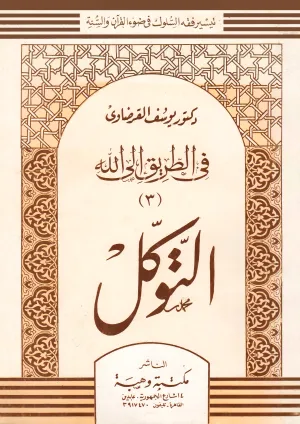 تيسير فقه السلوك في ضوء القرآن والسنة
دكتور يوسف القرضاوى
فى الطريق إلى الله
(٣)
التوكل
محمد
الناشر
مكتبة وهبة
١٤ شارع الجمهورية. عابدين
القاهرة. تليفون ٣٩١٧٤٧٠